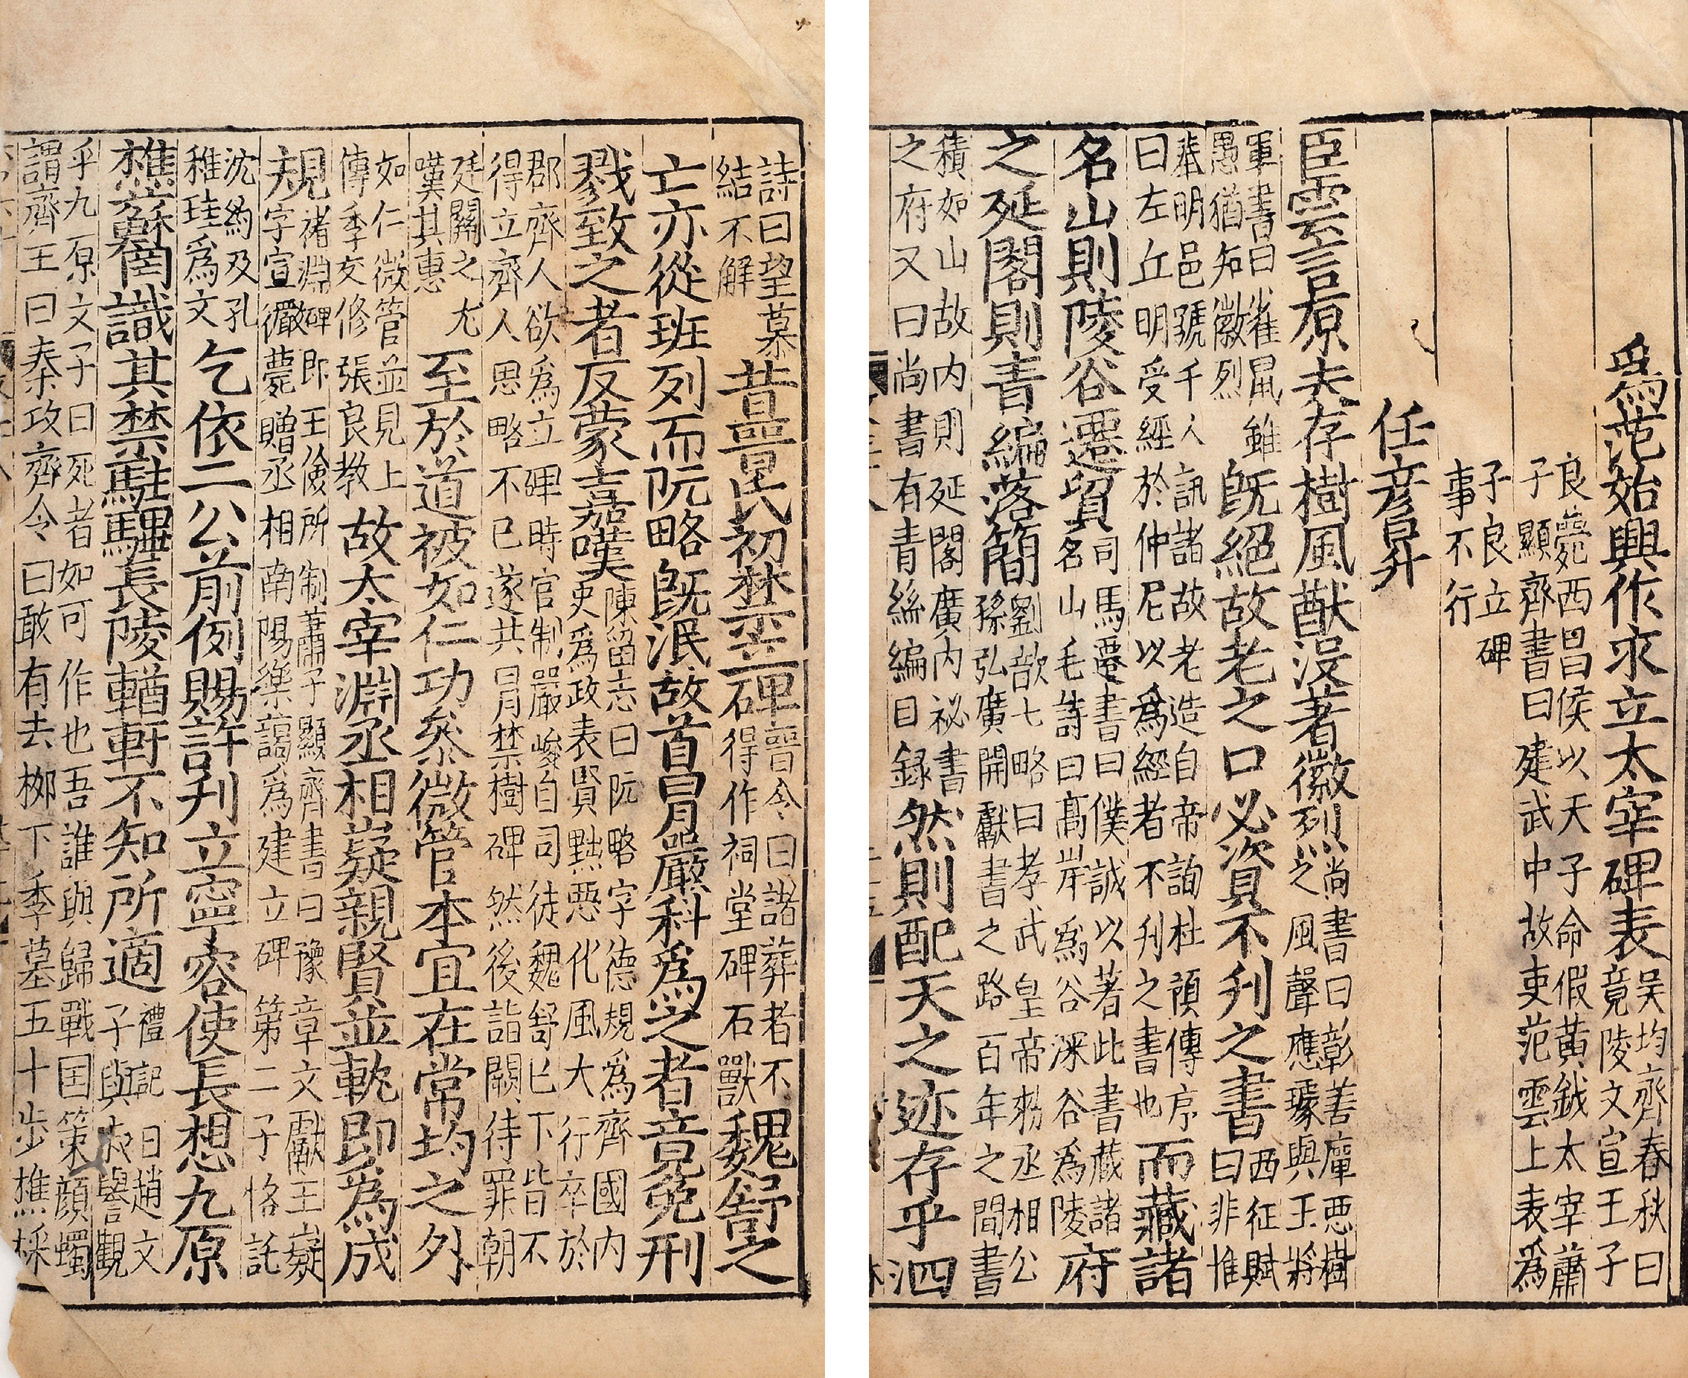 為范始興作求立太宰碑表吳均齊春秋曰竟陵文宣王子
良薨西昌侯以天子命假黃鉞太宰蕭子顯齊書曰建武中故吏范雲上表為
子良立碑事不行
任彥昇
臣雲言原夫存樹風猷沒著徽烈尚書曰彰善癉惡樹之風聲應璩與王將
軍書曰雀鼠雖愚猶知徽烈既絕故老之口必資不刊之書西征賦曰非惟
奉明邑號千人訊諸故老造自帝詢杜預傳序曰左丘明受經於仲尼以為經者不刊之書也而藏諸
名山則陵谷遷貿司馬遷書曰僕誠以著此書藏諸名山毛詩曰高岸為谷深谷為陵府
之延閣則青編落簡劉歆七略曰孝武皇帝勑丞相公孫弘廣開獻書之路百年之間書
積如山故內則延閣廣內祕書之府又曰尚書有青絲編目錄然則配天之迹存乎泗
詩曰望慕結不解昔晉氏初禁立碑晉令曰諸葬者不得作祠堂碑石獸魏舒之
亡亦從班列而阮略既泯故首冒嚴科為之者竟免刑
戮致之者反蒙嘉嘆陳留志曰阮略字德規為齊國內吏為政表賢黜惡化風大行卒於
郡齊人欲為立碑時官制嚴峻自司徒魏舒已下皆不得立齊人思略不已遂共冒禁樹碑然後詣闕待罪朝
廷聞之尤嘆其惠至於道被如仁功參微管本宜在常均之外
如仁微管並見上傳季友修張良教故太宰淵丞相嶷親賢並軌即為成
規褚淵碑即王儉所制蕭子顯齊書曰豫章文獻王嶷字宣儼薨贈丞相南陽樂藹為建立碑第二子恪託
沈約及孔稚珪為文乞依二公前例賜許刊立寧容使長想九原
樵蘇罔識其禁駐驆長陵輶軒不知所適禮記曰趙文子與叔譽觀
乎九原文子曰死者如可作也吾誰與歸戰国策顏斶謂齊王曰秦攻齊令曰敢有去栁下季墓五十步樵採